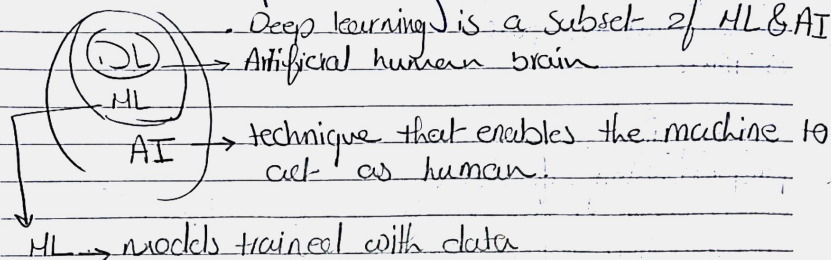 . Deep learning is a subset of ML & AI
DL → Artificial human brain
ML
AI → technique that enables the machine to
act as human.
ML → models trained with data